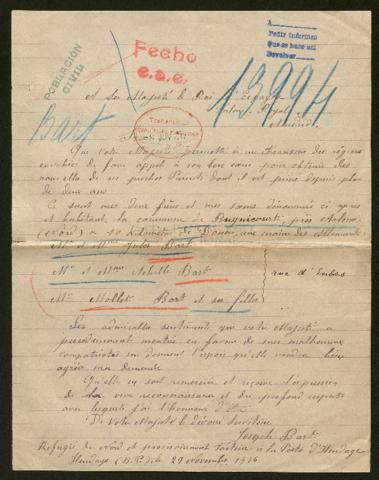 POBLACIÓN
CIVIL
Fecho
e.a.e.
A
Pedir informes
que se hace así
Devolver
13994
Bart
A Sa Majesté le Roi d'Espagne
Palais Royal
Madrid
Que votre Majesté permette à un Français des régions
envahies de faire appel à son bon cœur pour obtenir des
nouvelles de ses proches Parents dont il est privé depuis plus
de deux ans
Ce sont mes deux frères et mes sœurs dénommés ci après
et habitant la commune de Bugnicourt, près
(Nord) à 10 kilomètres de Douai, aux mains des Allemands
Mr et Mme Jules Bart
Mr et Mme Achille Bart
rue d'
Me Mollet Bart et sa fille
Les admirables sentiments que votre Majesté a
précédemment montrés en faveur de mes malheureux
compatriotes me donnent l'espoir qu'elle voudra bien
agréer ma demande
Qu'elle en soit remerciée et reçoive l'expression
de la vive reconnaissance et du profond respect
avec lesquels j'ai l'honneur d'être
De Votre Majesté le dévoué serviteur
Joseph Bart
Réfugié du Nord et provisoirement facteur à la Poste d'Hendaye
Hendaye (B.P.) le 29 Novembre 1916